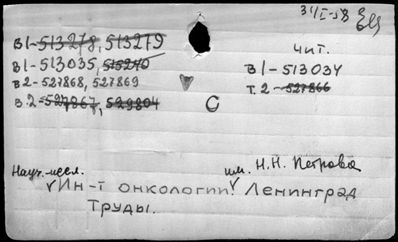 31/I-58 ЕЦ
В1-513278, 513279
чит.
В1-513035, 515240
В1-513034
В2-527868, 527869
т.2-527866
В.2-527867, 529804
С
Науч.-иссл. им. Н.Н. Петрова
Ин-т онкологии. Ленинград
Труды.